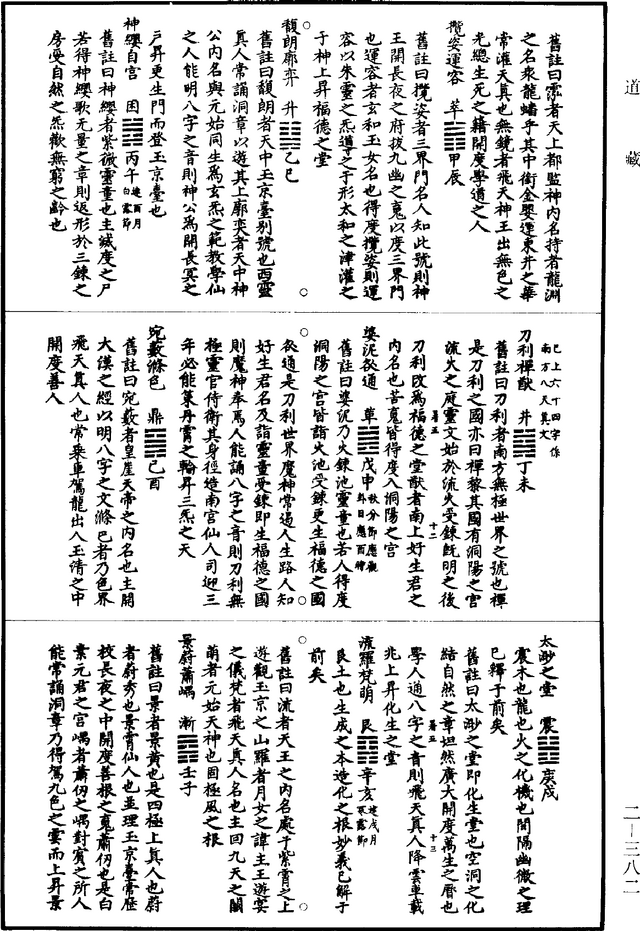 道藏
舊註曰霐者天上都監神內名持者龍淵
之名衆龍蟠乎其中銜金嬰運東井之華
常灌天真也無鏡者飛天神王出無色之
光總生死之籍開度學道之人
攬姿運容 萃 甲辰
舊註曰攬姿者三界門名人知此號則神
王開長夜之府拔九幽之䰟以度三界門
也運容者玄和玉女名也得度攬姿則運
容以朱靈之炁導之于形太和之津灌之
于神上昇福德之堂
馥朗廓奕 升 乙巳
舊註曰馥朗者天中玉京臺別號也西靈
真人常誦洞章以遊其上廓奕者天中神
公內名與元始同生爲玄炁之範教學仙
之人能明八字之音則神公爲開長冥之
戶昇更生門而登玉京臺也
神纓自宮 困 丙午 建酉月白露節
舊註曰神纓者紫微靈童也主緘度之尸
若得神纓歌元童之章則返形於三鍊之
房受自然之炁歡無窮之齡也
巳上六十四字係
南方八天真文
刀利禪猷 井 丁未
舊註曰刀利者南方無極世界之號也禪
是刀利之國亦曰禪黎其國有洞陽之宮
流火之庭靈文始於流火受鍊旣明之後
刀利改爲福德之堂猷者南上好生君之
內名也苦䰟皆得度入洞陽之宮
婆泥咎通 革 戊申 秋分節應觀卦日應酉神
舊註曰婆泥乃火鍊池靈童也若人得度
洞陽之宮皆詣火池受鍊更生福德之國
咎通是刀利世界魔神常遏人生路人知
好生君名及詣靈童受鍊即生福德之國
則魔神奉焉人能誦八字之音則刀利無
極靈官侍衛其身徑造南宮仙人司迎三
年必能策丹霄之輪昇三炁之天
宛藪滌色 鼎 己酉
舊註曰宛藪者皇崖天帝之內名也主開
大漠之經以明八字之文滌色者乃色界
飛天真人也常乘車駕龍出入玉清之中
開度善人
太眇之堂 震 庚戌
震木也龍也火之化機也間隔幽微之理
巳釋于前矣
舊註曰太眇之堂即化生堂也空洞之化
結自然之章坦然廣大開度萬生之曆也
學人通八字之音則飛天真人降雲車載
兆上昇化生之堂
流羅梵萌 艮 辛亥 建戌月寒露節
艮土也生成之本造化之根妙義已解于
前矣
舊註曰流者天王之內名處于紫霄之上
遊觀玉京之山羅者月女之諱主玉遊宴
之儀梵者飛天真人名也主回九天之關
萌者元始天神也固極風之根
景蔚蕭嵎 漸 壬子
舊註曰景者景黃也是四極上真人也蔚
者蔚秀也景霄仙人也並理玉京臺常歷
校長夜之中開度善根之䰟蕭仞也是白
素元君之宮嵎者蕭仞之嵎對賓之所人
能常誦洞章乃得駕九色之雲而上昇景
二—三八二